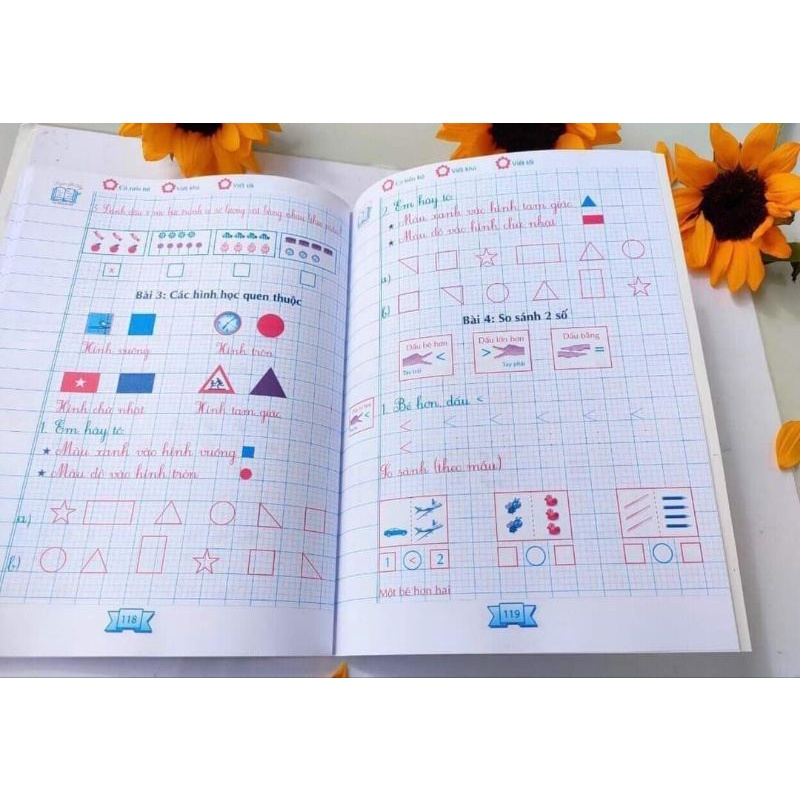 Viết khó
Viết tốt
Đánh dấu x vào
x
Bài 3: Các hình học quen thuộc
Hình vuông
Hình tròn
Hình chữ nhật
Hình tam giác
1. Em hãy tô:
★ Màu xanh vào hình vuông
★ Màu đỏ vào hình tròn
a)
b)
118
Viết khó
Viết tốt
2. Em hãy tô:
★ Màu xanh vào hình tam giác
★ Màu đỏ vào hình chữ nhật
a)
b)
Bài 4: So sánh 2 số
Dấu bé hơn
<
Tay trái
Dấu lớn hơn
>
Tay phải
Dấu bằng
=
<
1. Bé hơn, dấu <
< < < < < <
<
So sánh (theo mẫu)
1 < 2
Một bé hơn hai
119